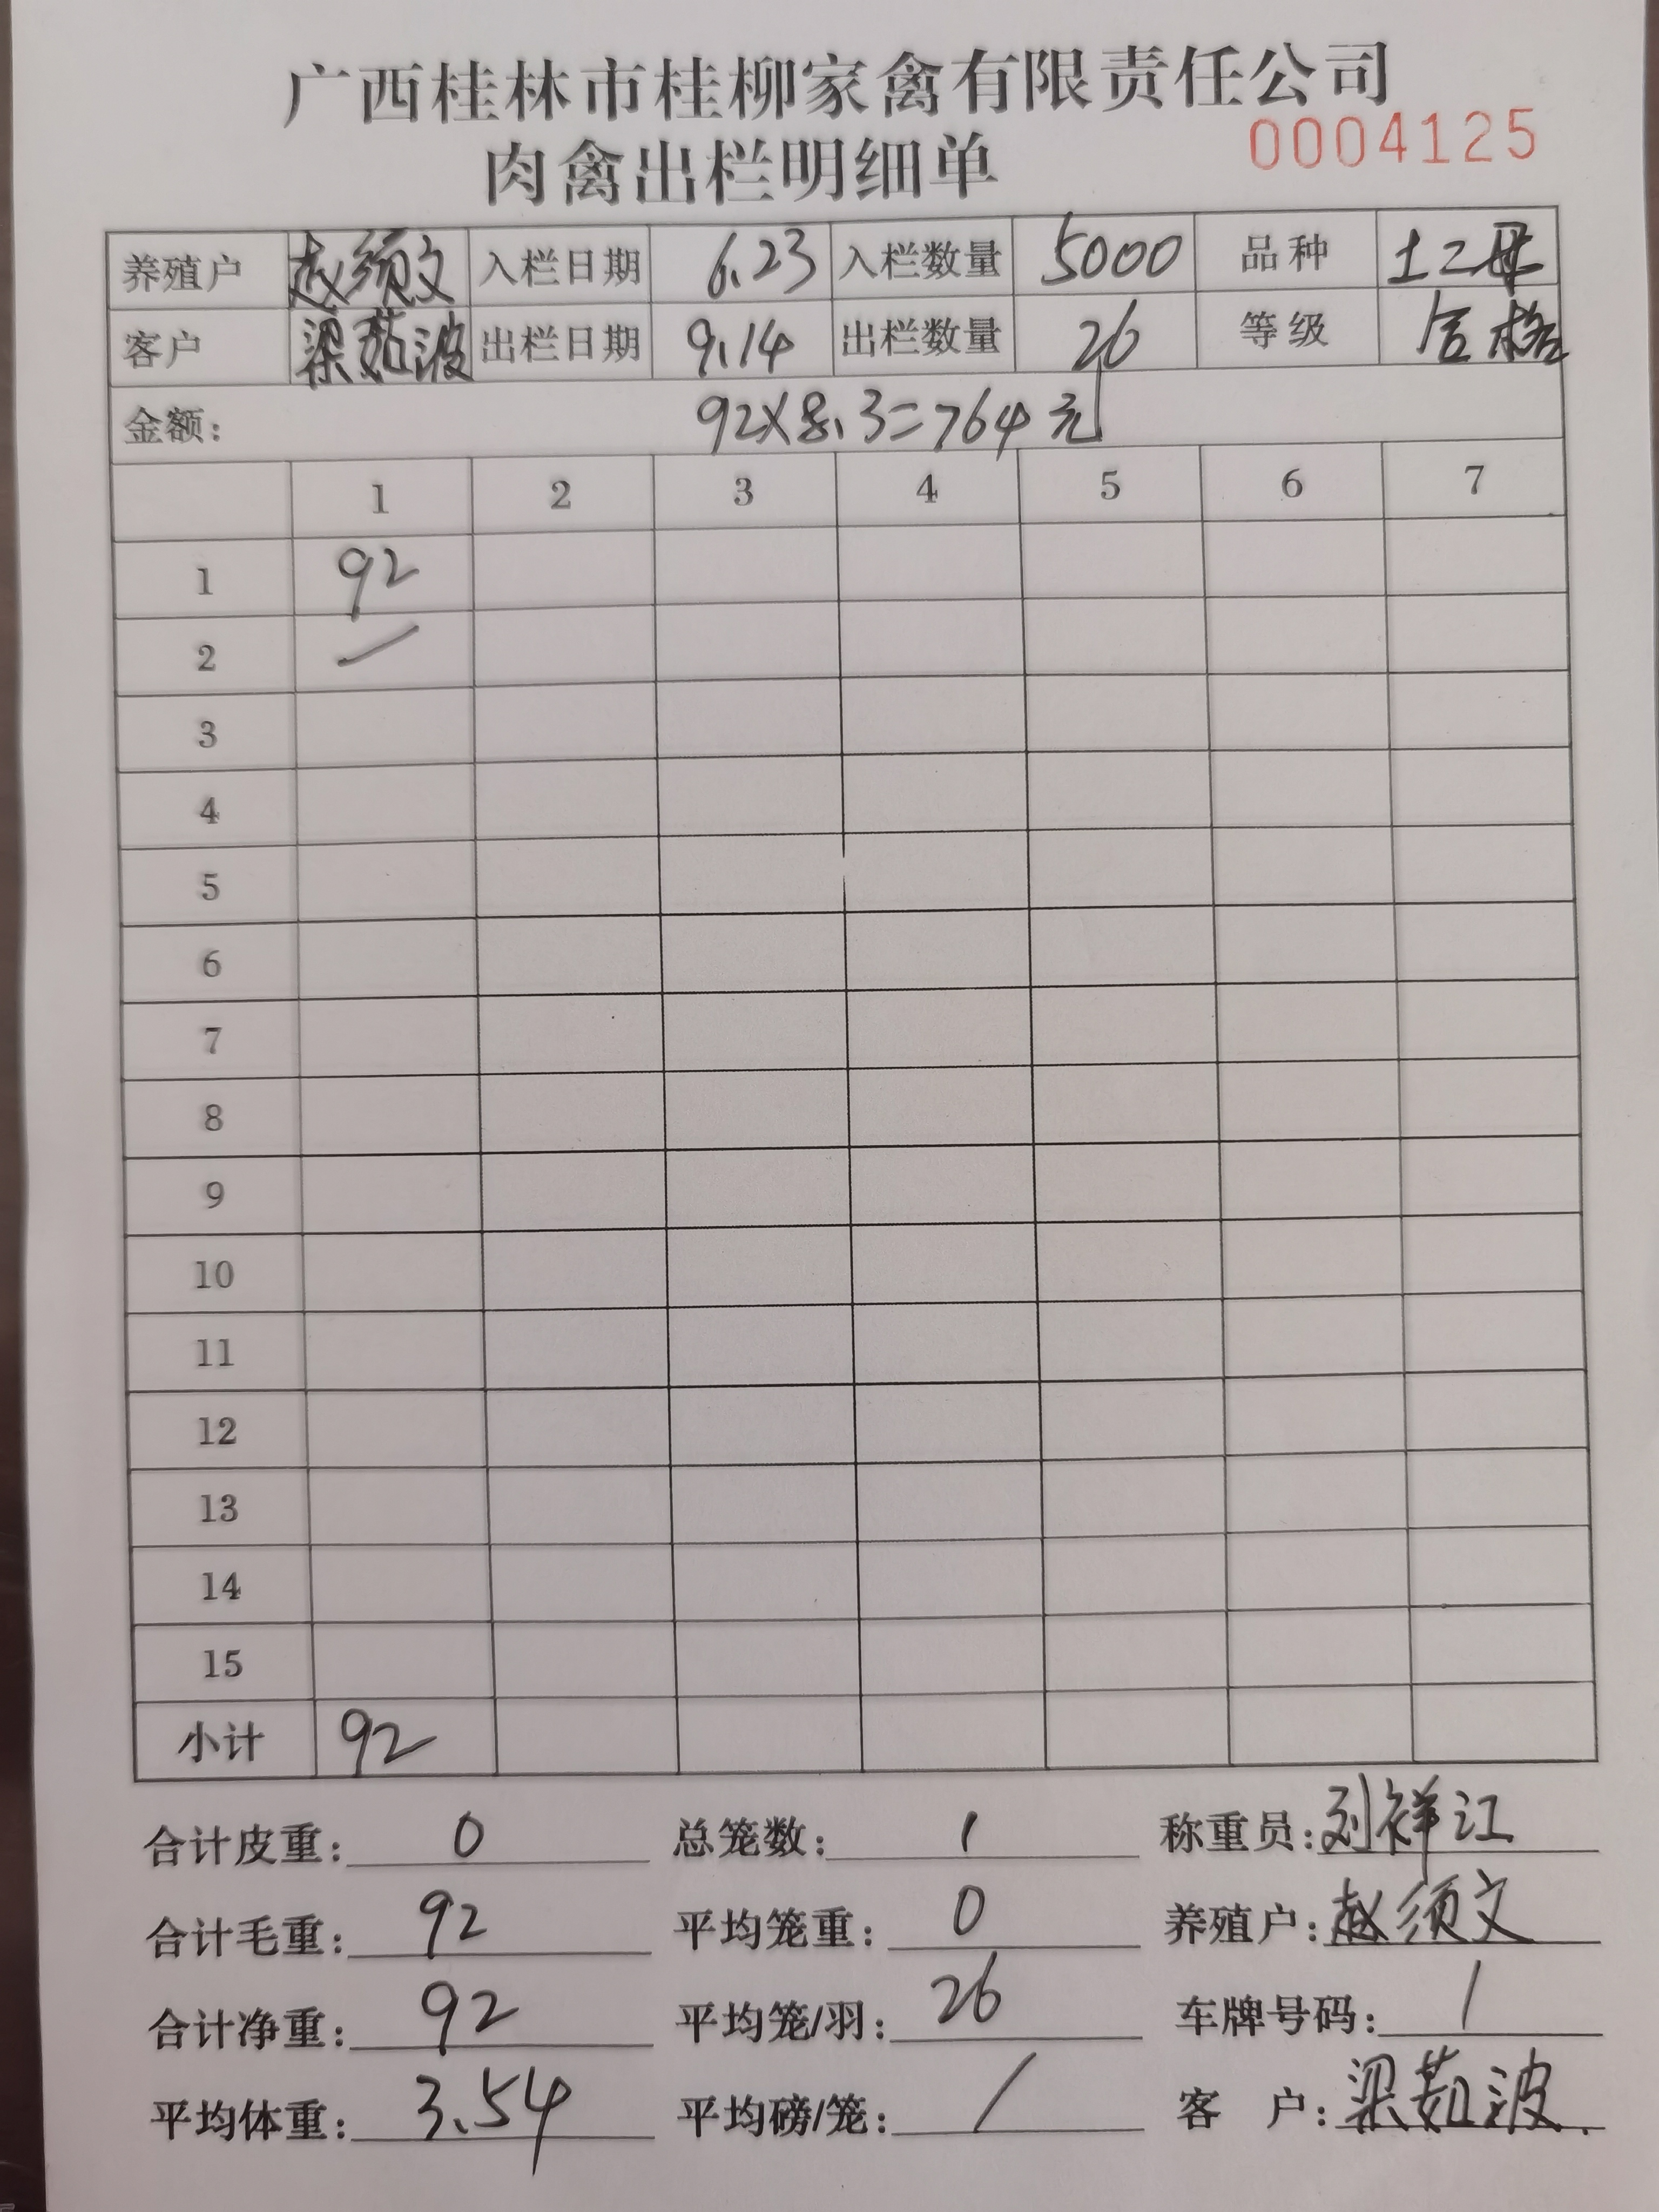 广西桂林市桂柳家禽有限责任公司
肉禽出栏明细单 0004125
养殖户 赵须文 入栏日期 6.23 入栏数量 5000 品种 土2母
客户 梁茹波 出栏日期 9.14 出栏数量 26 等级 合格
金额: 92×8.3=764元
1 2 3 4 5 6 7
1 92
2
3
4
5
6
7
8
9
10
11
12
13
14
15
小计 92
合计皮重: 0 总笼数: 1 称重员: 刘祥江
合计毛重: 92 平均笼重: 0 养殖户: 赵须文
合计净重: 92 平均笼/羽: 26 车牌号码: /
平均体重: 3.54 平均磅/笼: / 客 户: 梁茹波